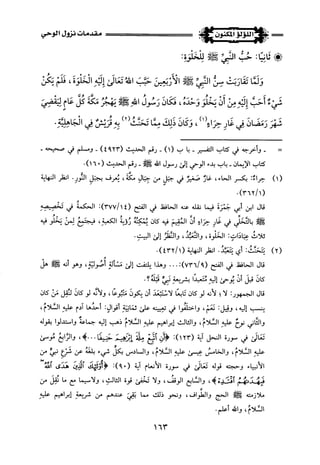 اللؤلؤ المكنون
مقدمات نزول الوحي
ثانيًا: حُبُّ النَّبِيِّ ﷺ لِلْخَلْوَةِ:
وَلَمَّا تَقَارَبَتْ سِنُّ النَّبِيِّ ﷺ الْأَرْبَعِينَ حَبَّبَ اللهُ تَعَالَى إِلَيْهِ الْخَلْوَةَ، فَلَمْ يَكُنْ
شَيْءٌ أَحَبَّ إِلَيْهِ مِنْ أَنْ يَخْلُوَ وَحْدَهُ، فَكَانَ رَسُولُ اللهِ ﷺ يَهْجُرُ مَكَّةَ كُلَّ عَامٍ لِيَقْضِيَ
شَهْرَ رَمَضَانَ فِي غَارِ حِرَاءٍ(١)، وَكَانَ ذَلِكَ مِمَّا تَحَنَّثُ(٢) بِهِ قُرَيْشٌ فِي الْجَاهِلِيَّةِ.
= ـ وأخرجه في كتاب التفسير ـ باب (١) ـ رقم الحديث (٤٩٢٣) ـ ومسلم في صحيحه ـ
كتاب الإيمان ـ باب بدء الوحي إلى رسول الله ﷺ ـ رقم الحديث (١٦٠).
(١) حِراءٌ: بكسر الحاء، غَارٌ صَغِيرٌ في جبل من جِبَالِ مكَّةَ، يُعرف بجبل النُّور. انظر النهاية
(٣٦٢/١)
قال ابن أبي جَمْرَةَ فيما نقله عنه الحافظ في الفتح (٣٧٧/١٤): الحكمةُ في تَخْصِيصِهِ
ﷺ بالتَّخَلِّي في غارِ حِرَاءٍ أنَّ المقِيمَ فيه كان يُمْكِنُهُ رُؤيةُ الكعبةِ، فيجتَمِعُ لِمَنْ يَخْلُو فيه
ثلاثُ عِبَاداتٍ: الخَلْوة، والتَّعَبُّد، والنَّظَرُ إلى البيتِ.
(٢) يَتَحَنَّثُ: أي يَتَعَبَّدُ. انظر النهاية (٤٣٢/١).
قال الحافظ في الفتح (٧٣٦/٩): ... وهذا يلتفت إلى مَسْأَلَةٍ أُصُولِيَّةٍ، وهو أنه ﷺ هل
كانَ قبلَ أنْ يُوحَى إليه مُتَعبِّدًا بشريعةِ نبيٍّ قَبْلَهُ؟.
قال الجمهور: لا؛ لأنه لو كان تَابِعًا لاسْتُبْعِدَ أن يكونَ مَتْبُوعًا، ولأنَّه لو كان لَنُقِلَ مَنْ كان
يُنسب إليه، وقيل: نَعَمْ، واختَلَفُوا في تعيينه على ثمانيَةِ أقوال: أحدُها آدم عليه السَّلامُ،
والثَّاني نوحٌ عليه السَّلامُ، والثالث إبراهيم عليه السَّلامُ ذهب إليه جماعةٌ واستدلوا بقوله
تَعَالَى في سورة النحل آية (١٢٣): ﴿أَنِ اتَّبِعْ مِلَّةَ إِبْرَاهِيمَ حَنِيفًا...﴾، والرَّابعُ موسى
عليه السَّلامُ، والخامسُ عيسى عليه السَّلامُ، والسادس بكلِّ شيء بلغهُ عن شَرْعِ نبيٍّ من
الأنبياءِ وحجته قوله تَعَالَى في سورة الأنعام آية (٩٠): ﴿أُولَئِكَ الَّذِينَ هَدَى اللَّهُ
فَبِهُدَاهُمُ اقْتَدِهْ﴾، والسَّابع الوقفُ، ولا تَخْفَى قوة الثالثِ، ولاسيما مع ما نُقِلَ من
ملازمتِهِ ﷺ الحج والطَّواف، ونحو ذلك مما بَقِيَ عندهم من شريعة إبراهيم عليه
السَّلامُ، والله أعلم.
١٦٣